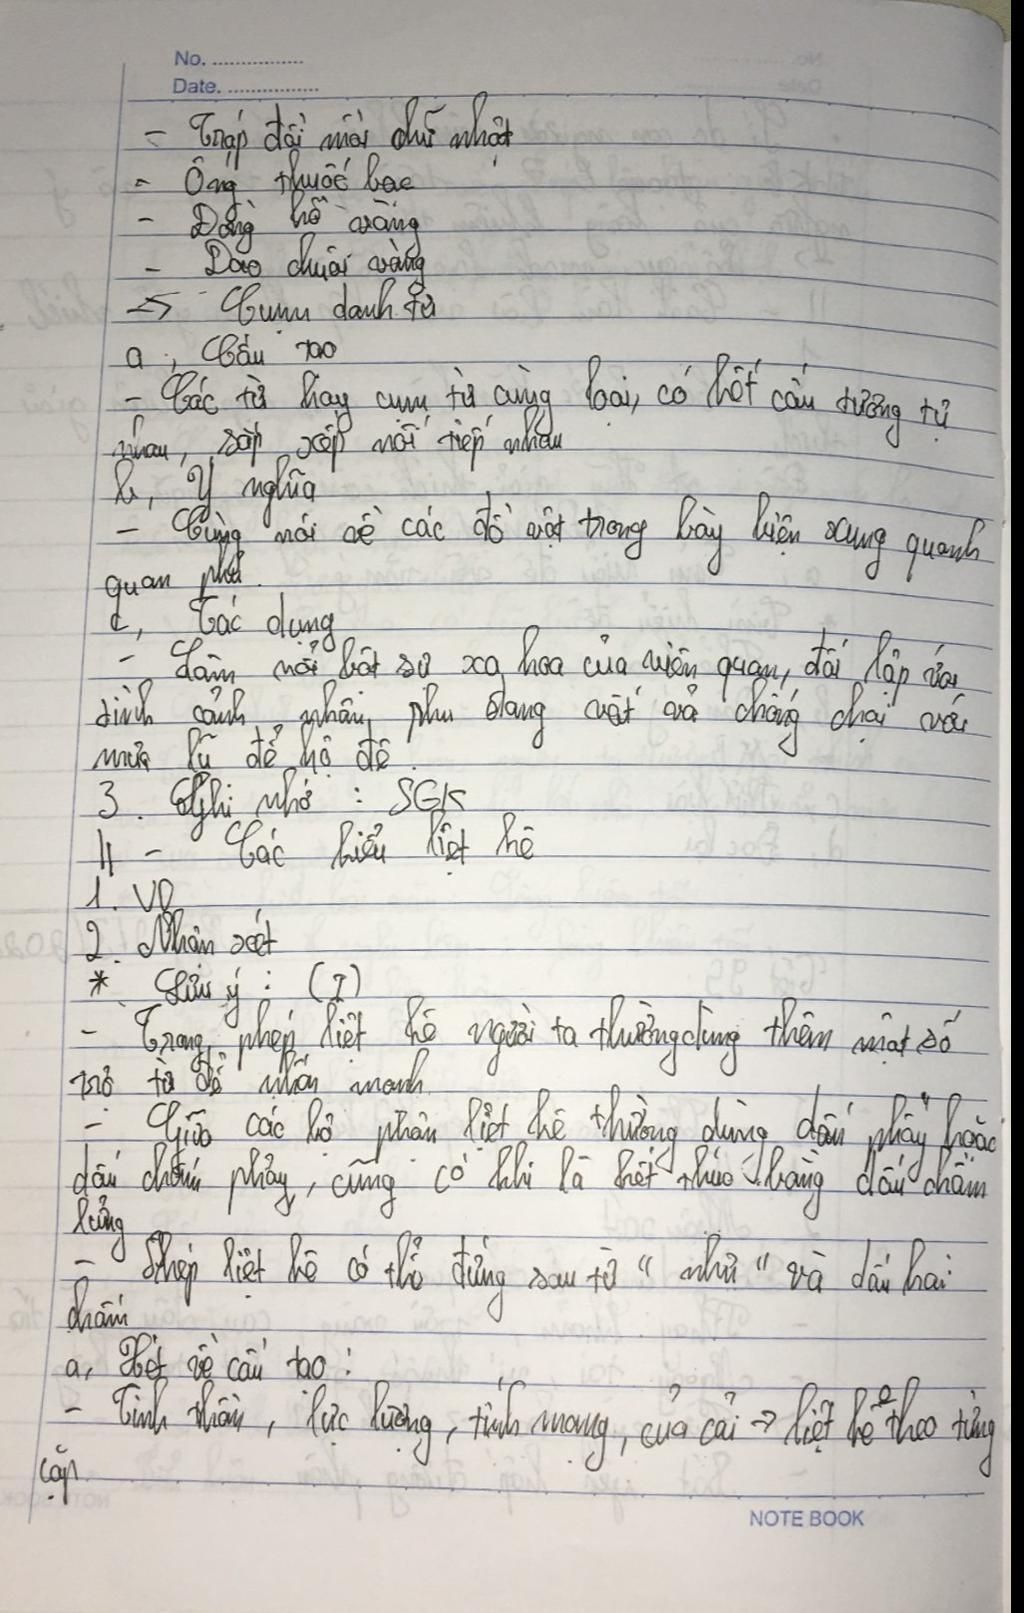 No. ................
Date. ................
- Tráp đồi mồi chữ nhật
- Ống thuốc bạc
- Đồng hồ vàng
- Dao chuôi vàng
=> Cụm danh từ
a, Cấu tạo
- Các từ hay cụm từ cùng loại, có kết cấu tương tự
nhau, sắp xếp nối tiếp nhau
b, Ý nghĩa
- Cùng nói về các đồ vật trong bày biện xung quanh
quan phụ
c, Tác dụng
- Làm nổi bật sự xa hoa của viên quan, đối lập với
tình cảnh nhân phu đang vất vả chống chọi với
mưa lũ để hộ đê.
3. Ghi nhớ : SGK
II - Các kiểu liệt kê
1. VD
2. Nhận xét
* Lưu ý : (I)
- Trong phép liệt kê người ta thường dùng thêm một số
trợ từ để nhấn mạnh
- Giữa các bộ phận liệt kê thường dùng dấu phẩy hoặc
dấu chấm phẩy, cũng có khi là kết thúc bằng dấu chấm
lửng
- Phép liệt kê có thể đứng sau từ " như " và dấu hai
chấm
a, Xét về cấu tạo :
- Tinh thần, lực lượng, tính mạng, của cải -> liệt kê theo từng
cặp
NOTE BOOK